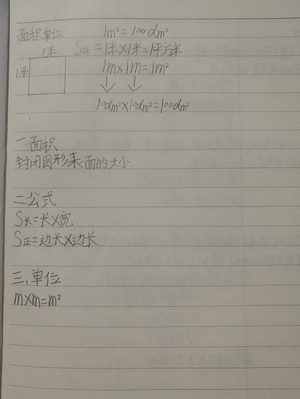 面积单位 1m²=100dm²
1米 S正=1米×1米=1平方米
1米 1m×1m=1m²
10dm²×10dm²=100dm²
一.面积
封闭图形表面的大小
二.公式
S长=长×宽
S正=边长×边长
三.单位
m×m=m²